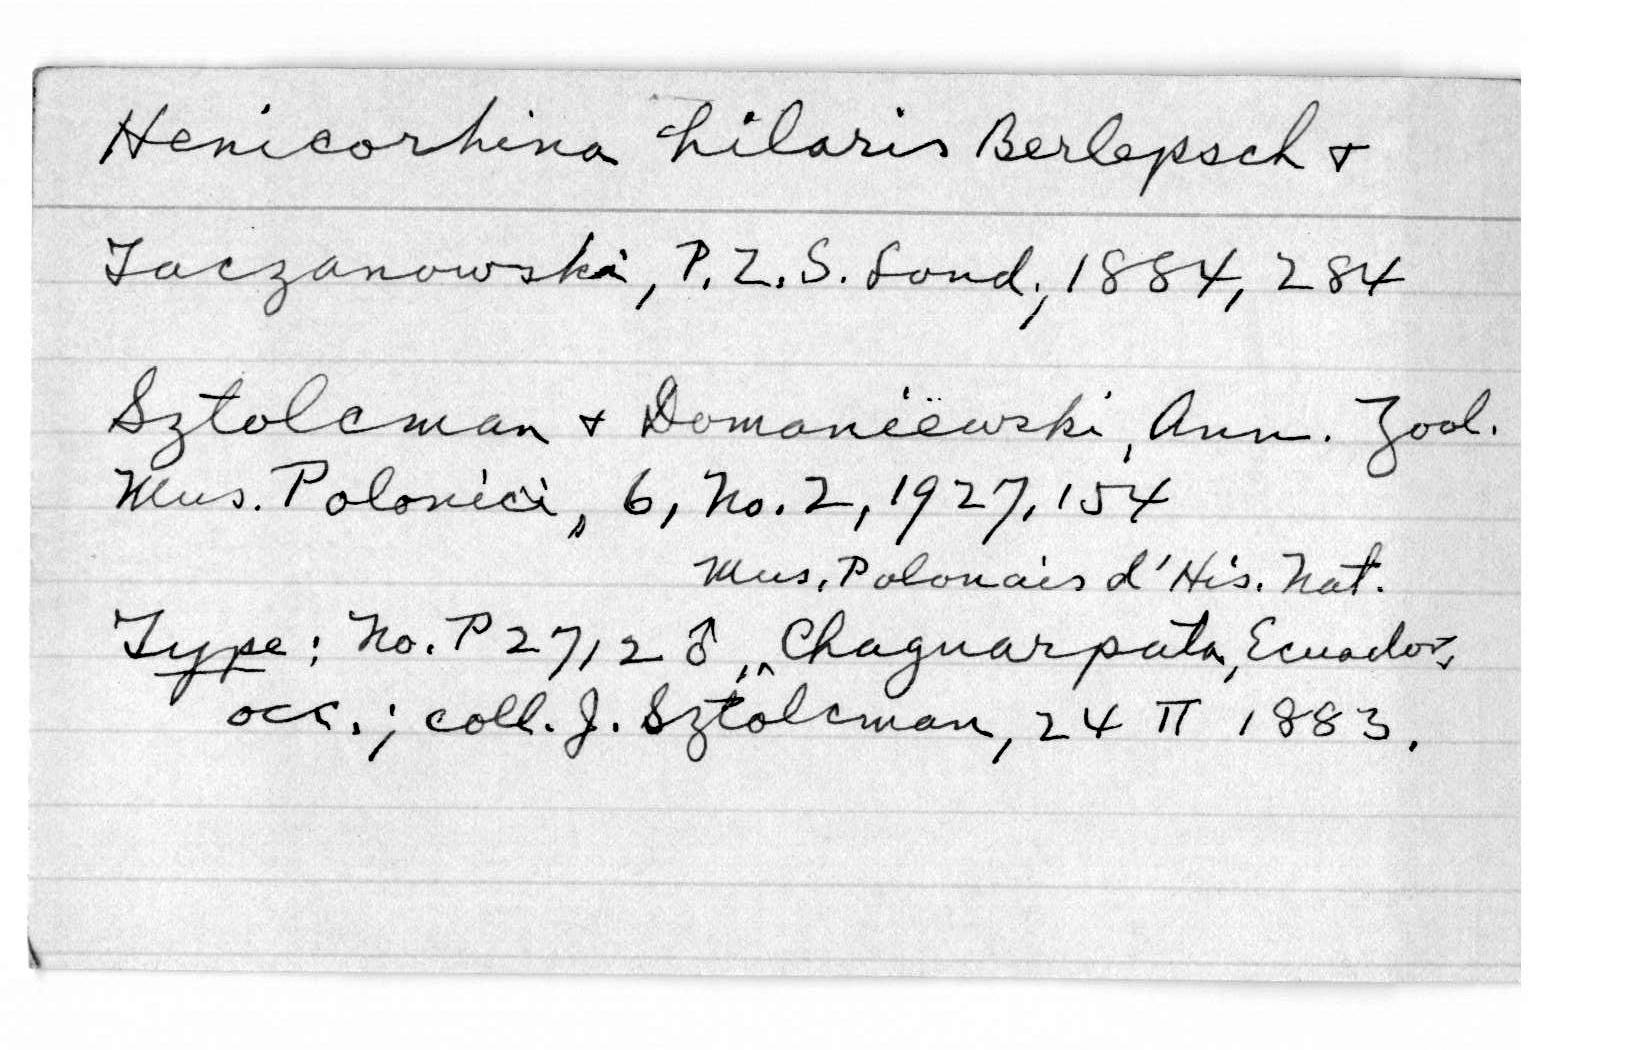 Henicorhina hilaris Berlepsch &
Taczanowski, P.Z.S. Lond., 1884, 284
Sztolcman & Domaniëwski, Ann. Zool.
Mus. Polonici, 6, No. 2, 1927, 154
Mus. Polonais d'His. Nat.
Type: No. P 2712 ♂, Chaguarpata, Ecuador,
occ.; coll. J. Sztolcman, 24 II 1883.